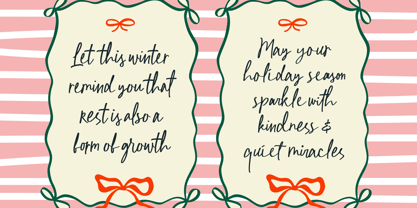 Let this winter
remind you that
rest is also a
form of growth
May your
holiday season
sparkle with
kindness &
quiet miracles